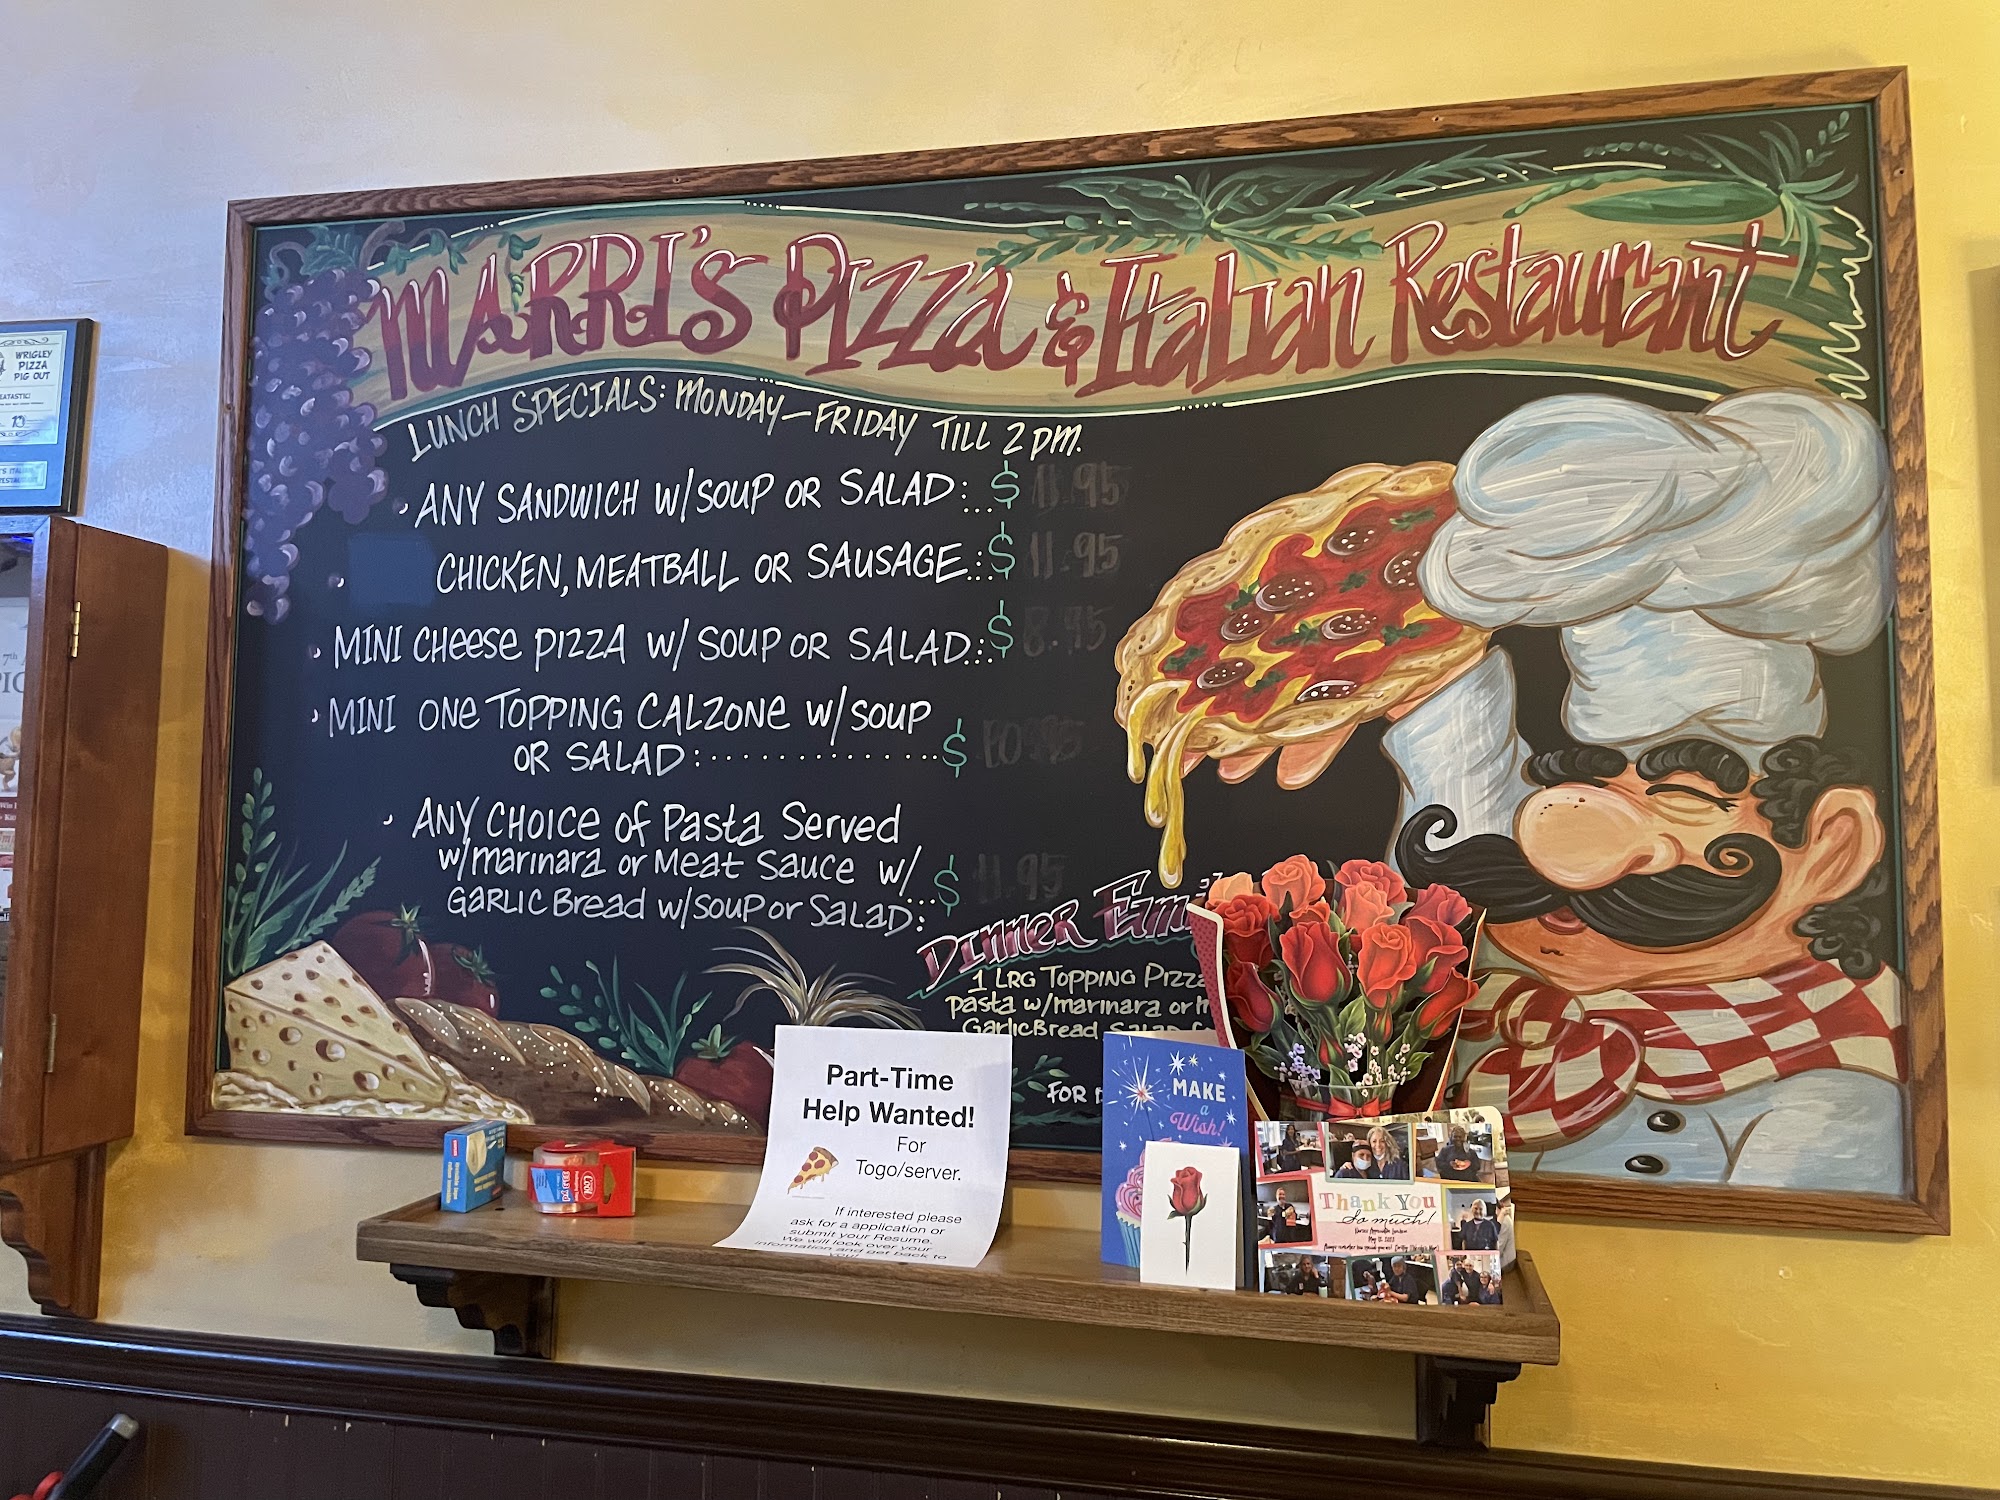 MARRI'S PIZZA & ITALIAN RESTAURANT
LUNCH SPECIALS: MONDAY—FRIDAY TILL 2 PM.
• ANY SANDWICH W/SOUP OR SALAD:...$ 11.95
• CHICKEN, MEATBALL OR SAUSAGE...:$ 11.95
• MINI CHEESE PIZZA W/ SOUP OR SALAD...:$ 8.95
• MINI ONE TOPPING CALZONE W/SOUP
OR SALAD:..............$
• ANY CHOICE OF PASTA SERVED
W/MARINARA OR MEAT SAUCE W/
GARLIC BREAD W/SOUP OR SALAD:...$ 11.95
DINNER
1 LRG TOPPING PIZZA
PASTA W/MARINARA OR
GARLIC BREAD
FOR
WRIGLEY
PIZZA
PIG OUT
Part-Time
Help Wanted!
For
Togo/server.
If interested please
ask for a application or
submit your Resume.
We will look over your
information and get back to
you!
MAKE
a
Wish!
THANK YOU
So much!